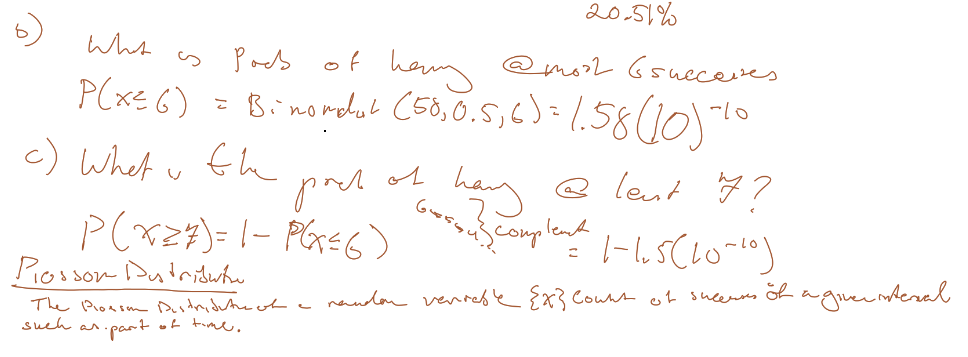 20.51%
b) What is Prob of having @ most 6 successes
P(x≤6) = Binomdist (58,0.5,6) = 1.58(10)^-10
c) What is the prob of having @ least 7?
P(x≥7) = 1 - P(x≤6) } complement = 1-1.5(10^-10)
Piosson Distribution
The Piosson Distribution of a random variable {x} count of success of a given interval
such as part of time.